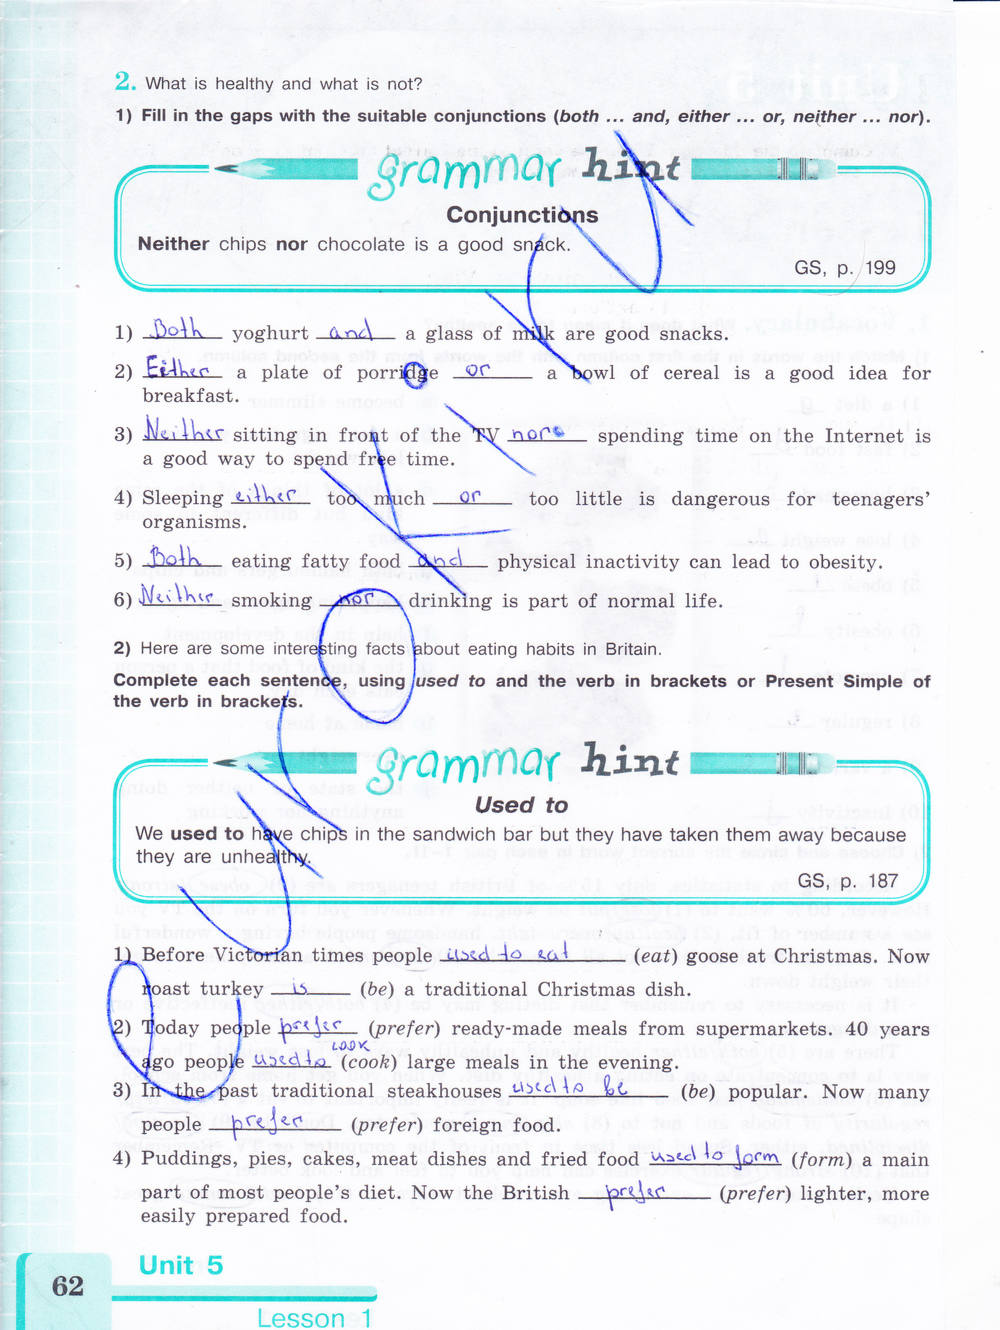 2. What is healthy and what is not?
1) Fill in the gaps with the suitable conjunctions (both ... and, either ... or, neither ... nor).
grammar hint
Conjunctions
Neither chips nor chocolate is a good snack.
GS, p. 199
1) Both yoghurt and a glass of milk are good snacks.
2) Either a plate of porridge or a bowl of cereal is a good idea for
breakfast.
3) Neither sitting in front of the TV nor spending time on the Internet is
a good way to spend free time.
4) Sleeping either too much or too little is dangerous for teenagers'
organisms.
5) Both eating fatty food and physical inactivity can lead to obesity.
6) Neither smoking nor drinking is part of normal life.
2) Here are some interesting facts about eating habits in Britain.
Complete each sentence, using used to and the verb in brackets or Present Simple of
the verb in brackets.
grammar hint
Used to
We used to have chips in the sandwich bar but they have taken them away because
they are unhealthy.
GS, p. 187
1) Before Victorian times people used to eat (eat) goose at Christmas. Now
roast turkey is (be) a traditional Christmas dish.
2) Today people prefer (prefer) ready-made meals from supermarkets. 40 years
ago people used to cook (cook) large meals in the evening.
3) In the past traditional steakhouses used to be (be) popular. Now many
people prefer (prefer) foreign food.
4) Puddings, pies, cakes, meat dishes and fried food used to form (form) a main
part of most people's diet. Now the British prefer (prefer) lighter, more
easily prepared food.
62
Unit 5
Lesson 1